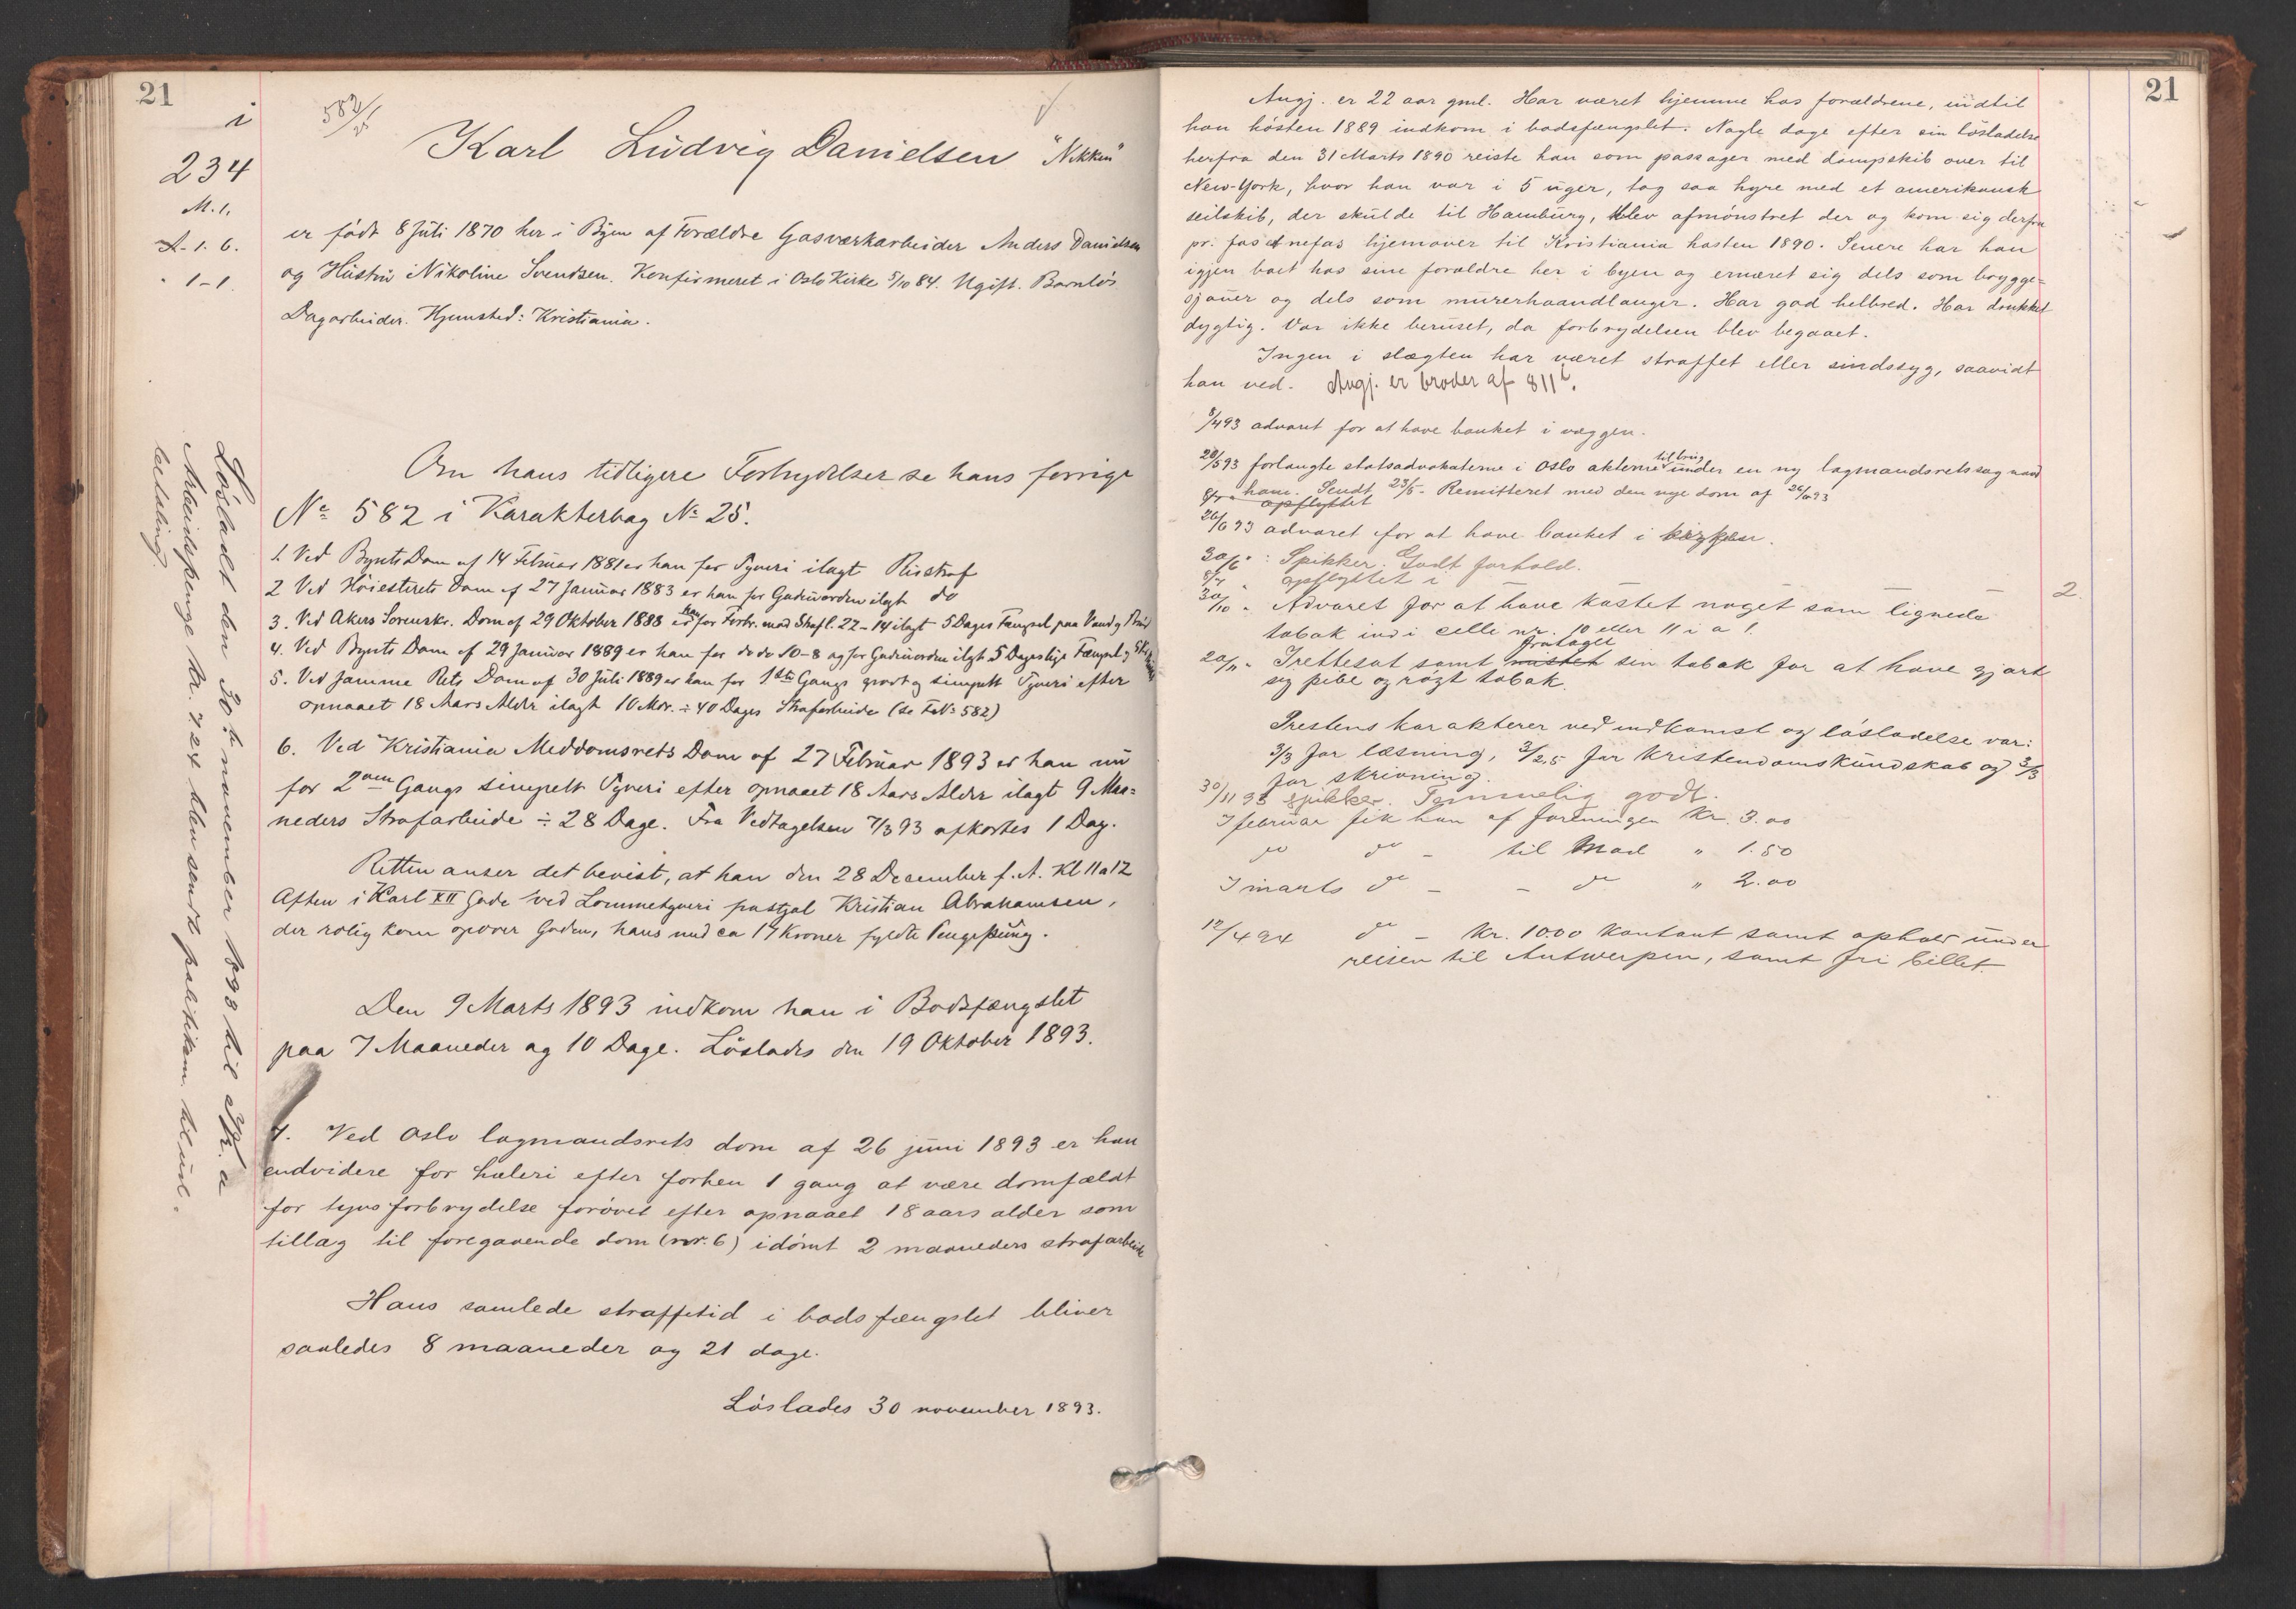 21
i
582/25
234
M. 1.
A- 1. 6.
" 1-1.
Karl Ludvig Danielsen "Nikken"
er født 8 Juli 1870 her i Byen af Forældre Gasværkarbeider Anders Danielsen
og Hustru Nikoline Svendsen. Konfirmeret i Oslo Kirke 5/10 84. Ugift. Barnløs.
Dagarbeider. Hjemsted: Kristiania.
Om hans tidligere Forbrydelser se hans forrige
No 582 i Karakterbog No 25.
1. Ved Byrets Dom af 14 Februar 1881 er han for Tyveri ilagt Risstraf
2 Ved Høiesterets Dom af 27 Januar 1883 er han for Gadeuorden ilagt do
3. Ved Akers Sorenskr. Dom af 29 Oktober 1888 er han for Forbr. mod Strafl. 22-14 ilagt 5 Dages Fængsel paa Vand og Brød
4. Ved Byrets Dom af 29 Januar 1889 er han for do do 10-8 og for Gadeuorden ilagt 5 Dages lige Fængsel og
5. Ved samme Rets Dom af 30 Juli 1889 er han for 1ste Gangs grovt og simpelt Tyveri efter
opnaaet 18 Aars Alder ilagt 10 Mdr. ÷ 40 Dages Strafarbeide (se F. No 582)
6. Ved Kristiania Meddomsrets Dom af 27 Februar 1893 er han nu
for 2den Gangs simpelt Tyveri efter opnaaet 18 Aars Alder ilagt 9 Maa=
neders Strafarbeide ÷ 28 Dage. Fra Vedtagelsen 7/3 93 afkortes 1 Dag.
Retten anser det bevist, at han den 28 December f. A. Kl 11 a 12
Aften i Karl XII Gade ved Lommetyveri frastjal Kristian Abrahamsen,
der rolig kom opover Gaden, hans med ca 17 Kroner fyldte Pengepung.
Den 9 Marts 1893 indkom han i Bodsfængslet
paa 7 Maaneder og 10 Dage. Løslades den 19 Oktober 1893.
7. Ved Oslo lagmandsrets dom af 26 juni 1893 er han
endvidere for hæleri efter forhen 1 gang at være domfældt
for tyvsforbrydelse forøvet efter opnaaet 18 aars alder som
tillæg til foregaaende dom (nr. 6) idømt 2 maaneders strafarbeide
Hans samlede straffetid i bodsfængslet bliver
saaledes 8 maaneder og 21 dage.
Løslades 30 november 1893.
Løsladt den 30te november 1893 til Kr.a
Arbeidspenge kr. 7.24 blev sendt politiktm. til ud-
betaling.
21
Angj. er 22 aar gml. Har været hjemme hos forældrene, indtil
han høsten 1889 indkom i bodsfængslet. Nogle dage efter sin løsladelse
herfra den 31 Marts 1890 reiste han som passager med dampskib over til
New-York, hvor han var i 5 uger, tog saa hyre med et amerikansk
seilskib, der skulde til Hamburg, blev afmønstret der og kom sig derfra
pr. fas et nefas hjemover til Kristiania høsten 1890. Senere har han
igjen boet hos sine forældre her i byen og ernæret sig dels som brygge=
sjauer og dels som murerhaandlanger. Har god helbred. Har drukket
dygtig. Var ikke beruset, da forbrydelsen blev begaaet.
Ingen i slægten har været straffet eller sindssyg, saavidt
han ved. Angj. er broder af 811 i.
8/4 93 advaret for at have banket i væggen.
20/5 93 forlangte statsadvokaterne i Oslo akterne til brug under en ny lagmandsretssag mod
ham. Sendt 23/5- Remitteret med den nye dom af 26/6 93
opflyttet
26/6 93 advaret for at have banket i kirken.
30/6 " : Spikker. Godt forhold.
8/7 " opflyttet i
30/10 " Advaret for at have kastet noget som lignede 2.
tobak ind i celle nr. 10 eller 11 i a 1.
20/11 " Irettesat samt mistet frataget sin tobak for at have gjort
sig pibe og røgt tobak.
Prestens karakterer ved indkomst og løsladelse var:
3/3 for læsning, 3/2,5 for kristendomskundskab og 3/3
for skrivning.
30/11 93 spikker. Temmelig godt.
I februar fik han af foreningen Kr. 3.00
do do - til Mad " 1.50
I marts do - - do " 2.00
12/4 94 do - kr. 10.00 kontant samt ophold under
reisen til Antwerpen, samt fri billet.